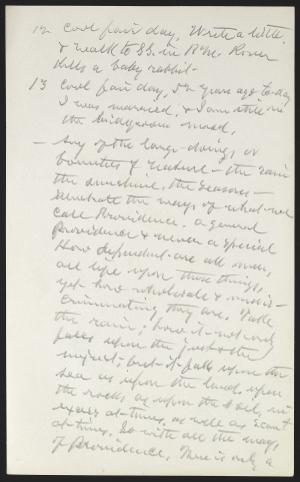 12 Cool fair day, Write a little.
& walk to S.S. in P.M. Rover
kills a baby rabbit -
13 Cool fair day, 52 years ago to-day
I was married, & I am still in
the bridgegroom mood.
- Any of the large doings, or
bounties of Nature - the rain
the sunshine, the seasons -
illustrate the ways of what we
call Providence. a general
Providence & never a special
How dependent are all men,
all life upon these things,
yet how wholesale & indis-
criminating they are. Take
the rain; how it not only
falls upon the just & the
unjust; but it falls upon the
sea as upon the land, upon
the rocks as upon the soil, in
excess at times, as well as scant
at times. So with all the ways
of Providence. There is only a